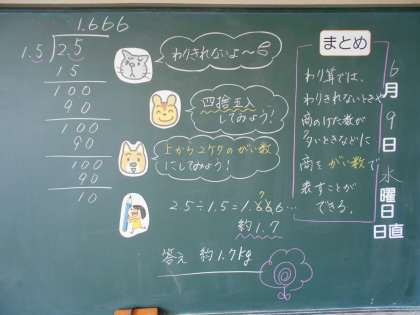 1.666
1.5 2.5
15
100
90
100
90
100
90
10
わりきれないよ〜
四捨五入
してみよう!
上から2ケタのがい数
にしてみよう!
2.5÷1.5=1.666…
約1.7
答え 約1.7kg
まとめ
わり算では、
わりきれないときや
商のけた数が
多いときなどに
商をがい数で
表すことが
できる。
6月9日水曜日
日直